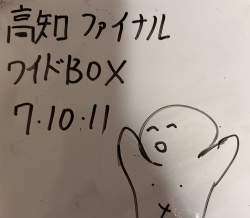 高知 ファイナル
ワイドBOX
7・10・11